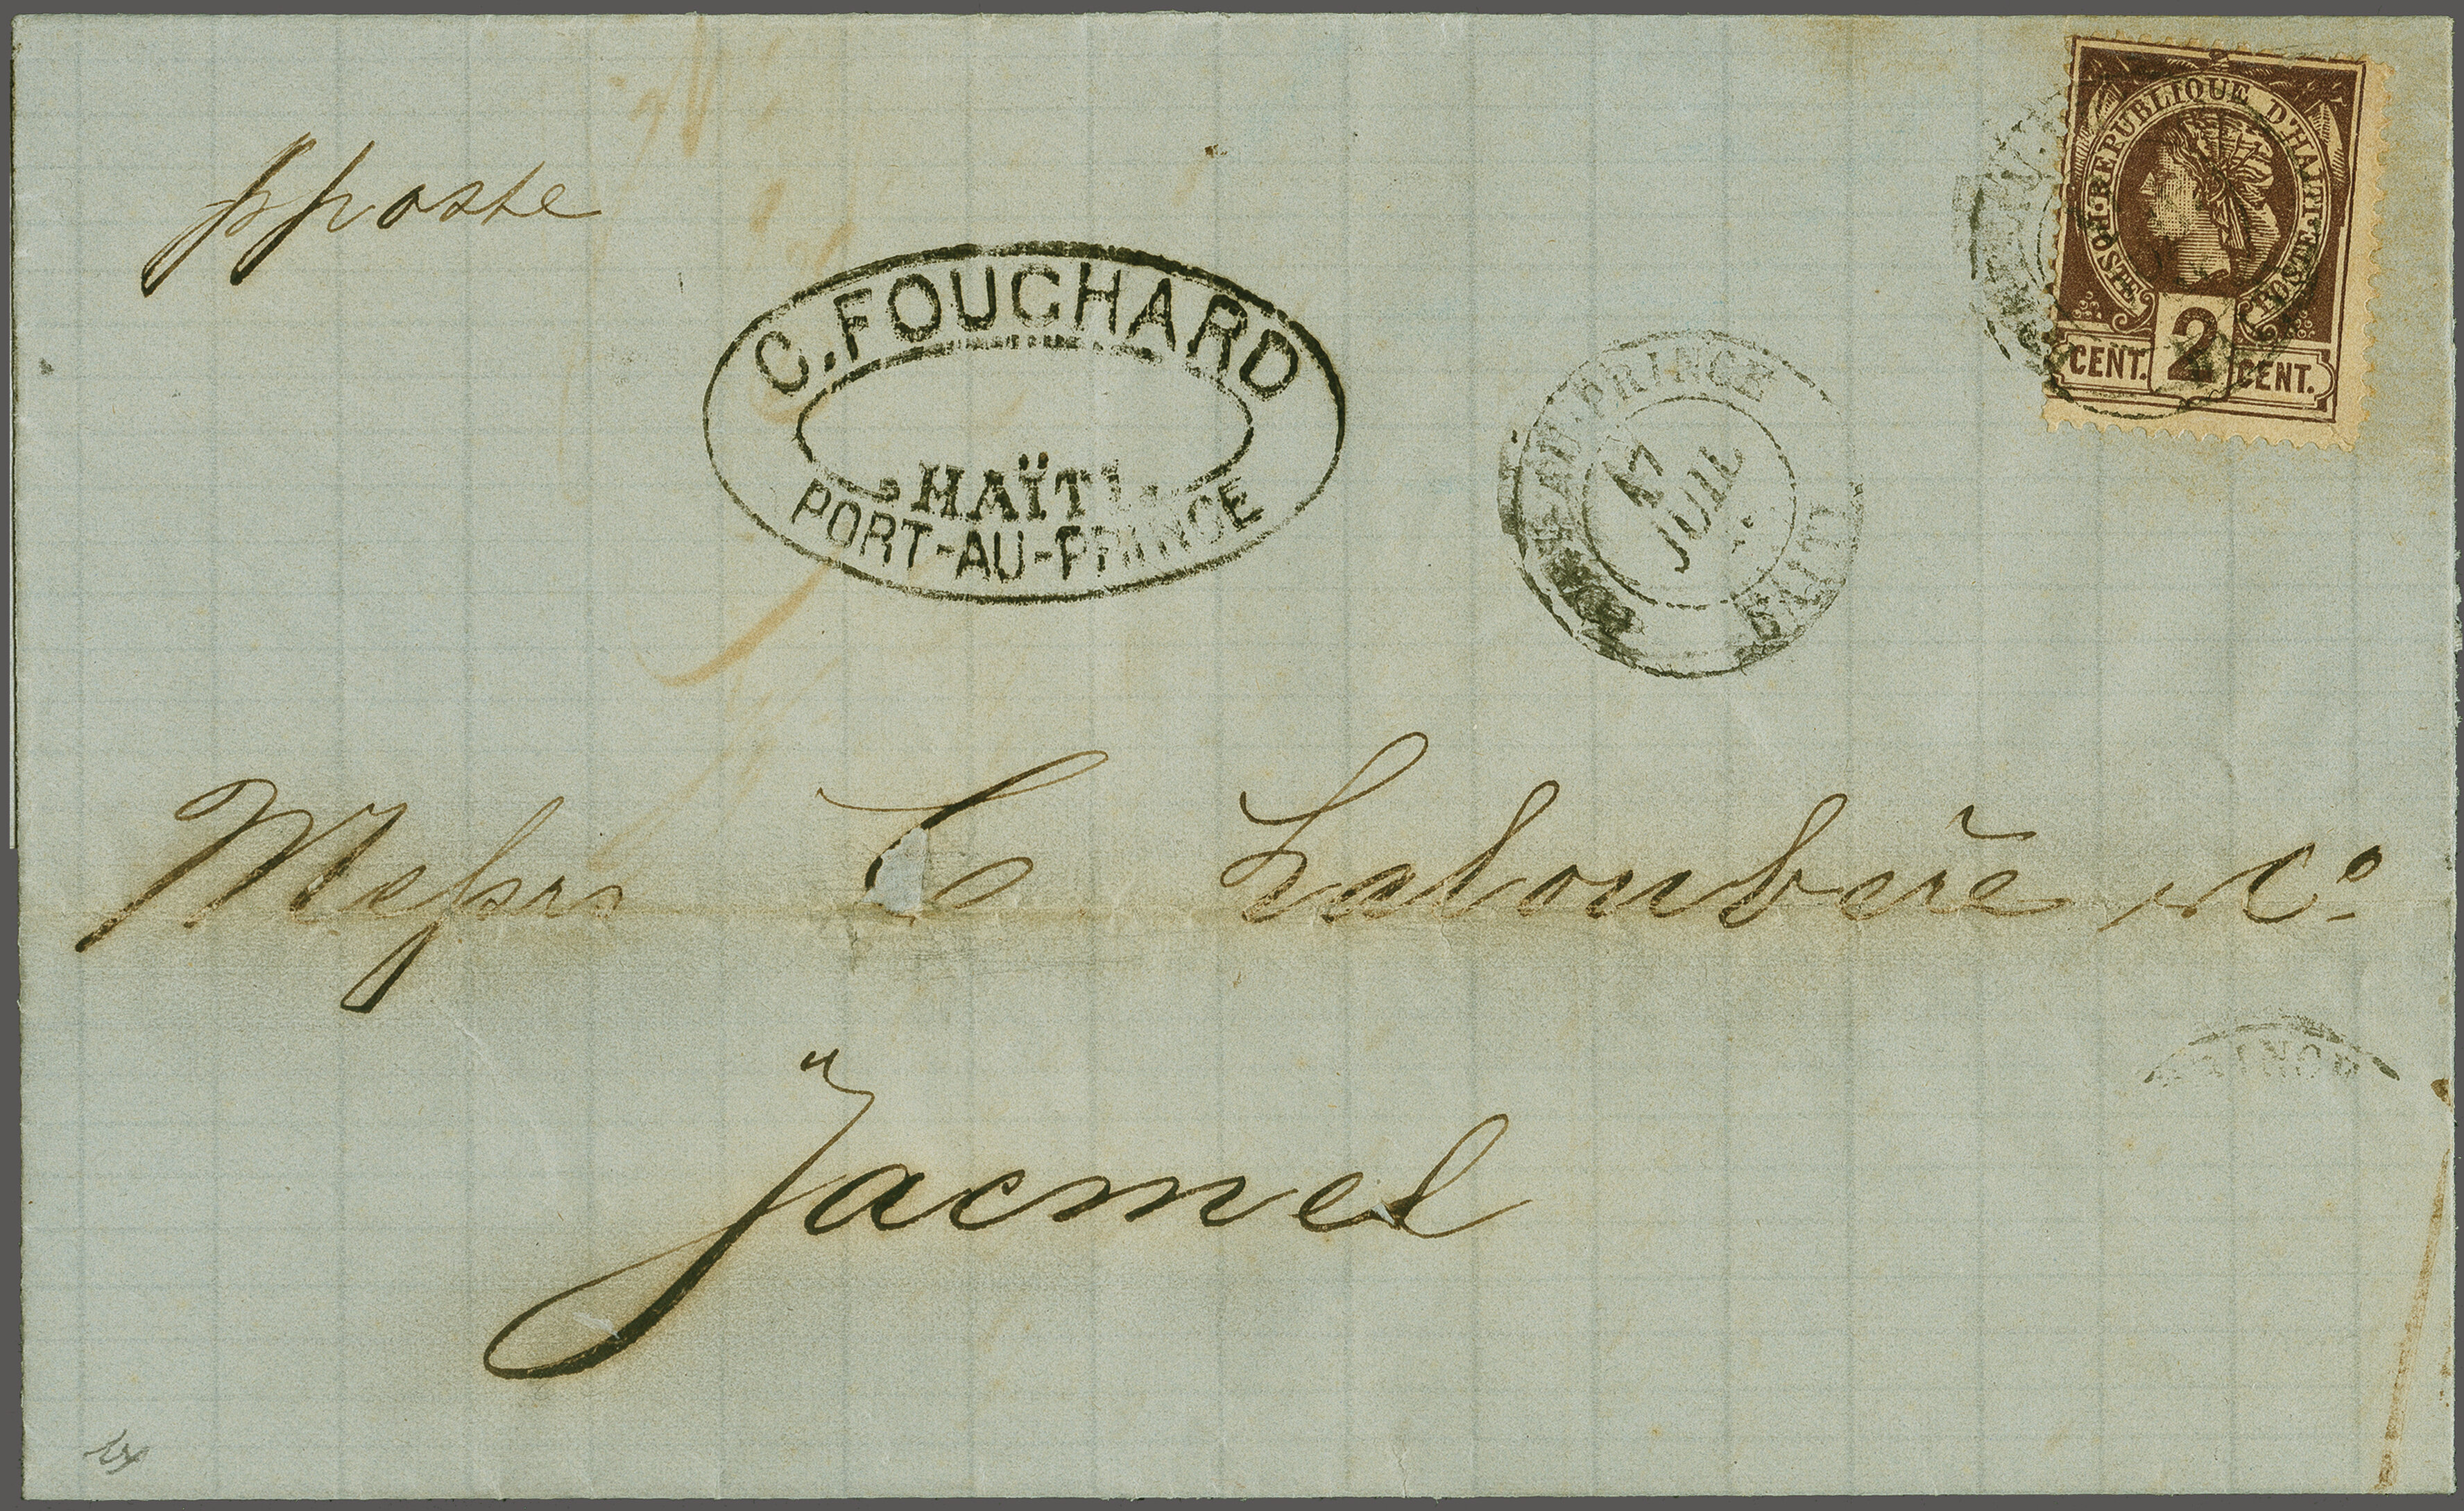 pposte
C. FOUCHARD
HAÏTI
PORT-AU-PRINCE
PORT-AU-PRINCE
17
JUIL
HAITI
REPUBLIQUE D'HAITI
POSTE
POSTE
CENT. 2 CENT.
Messrs C Labonbère & Co.
Jacmel